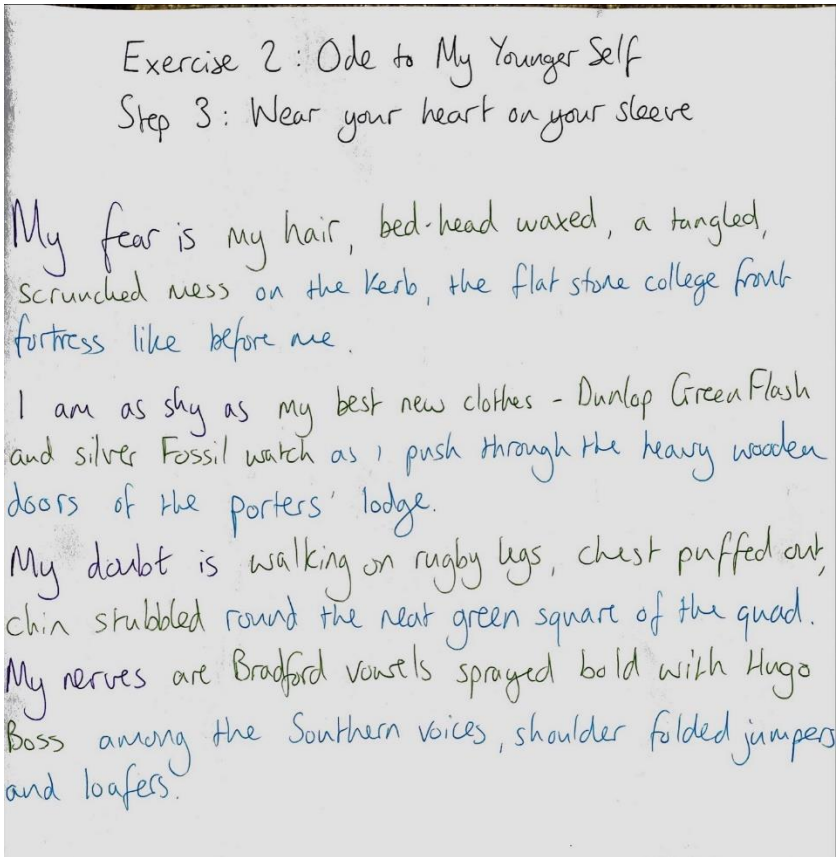 Exercise 2: Ode to My Younger Self
Step 3: Wear your heart on your sleeve
My fear is my hair, bed-head waxed, a tangled,
scrunched mess on the kerb, the flat stone college front
fortress like before me.
I am as shy as my best new clothes - Dunlop Green Flash
and silver Fossil watch as I push through the heavy wooden
doors of the porters' lodge.
My doubt is walking on rugby legs, chest puffed out,
chin stubbled round the neat green square of the quad.
My nerves are Bradford vowels sprayed bold with Hugo
Boss among the Southern voices, shoulder folded jumpers
and loafers.